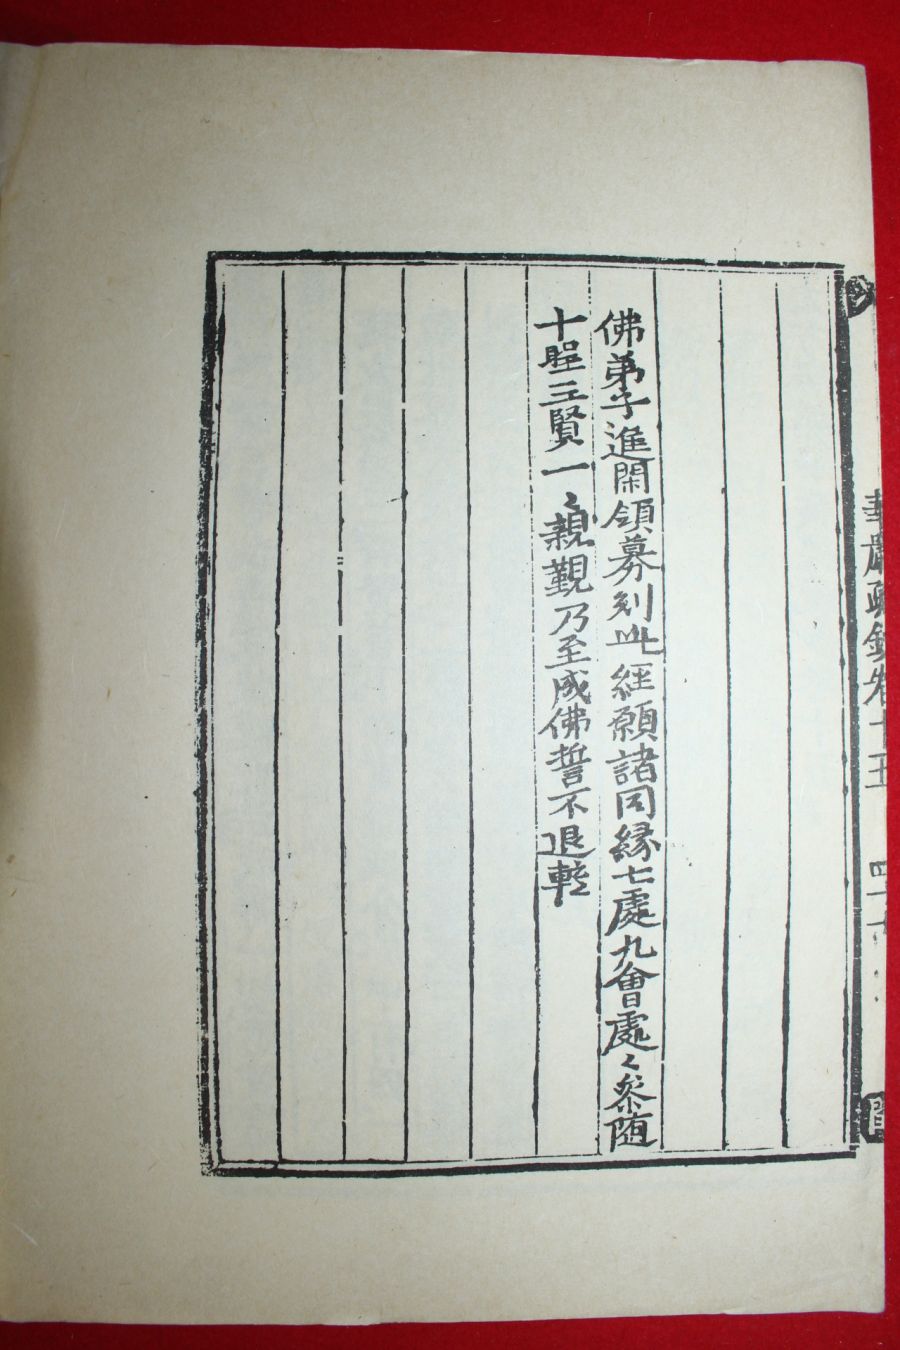 華嚴疏鈔卷十五 四十七
佛弟子進閑領募刻此經願諸同縁七處九會處〻叅随
十聖三賢一〻親覲乃至成佛誓不退轉